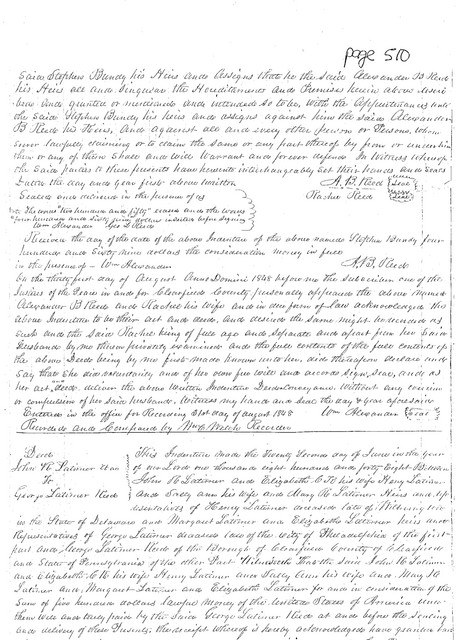 page 510
Said Stephen Bundy his Heirs and Assigns that he the said Alexander B Reed
his Heirs all and Singular the Hereditaments and Premises herein above descri
bed and granted or mentioned and intended so to be, with the Appurtenances unto
the said Stephen Bundy his heirs and assigns against him the said Alexander
B Reed his Heirs, and against all and every other person or Persons, whom
soever lawfully claiming or to claim the same or any part thereof by from or under him
them or any of them Shall and will Warrant and forever defend. In Witness whereof
the said parties to these presents have hereunto interchangeably set their hands and Seals
Dated the day and year first above written
Sealed and delivered in the presence of us
A. B. Reed Seal
Rachel Reed Seal
The words two hundred and fifty erased and the words
four hundred and sixty nine dollars inserted before signing
Wm Alexander Geo L Reed
Received the day of the date of the above Indenture of the above named Stephen Bundy four
hundred and Sixty nine dollars the consideration money in full
in the presence of - Wm Alexander
A. B. Reed
On the thirty first day of August Anno Domini 1848 before me the subscriber one of the
Justices of the Peace in and for Clearfield County, personally appeared the above named
Alexander B Reed and Rachel his wife and in due form of law acknowledged the
above Indenture to be their act and deed, and desired the same might be recorded as
such and the said Rachel being of full age and Separate and apart from her said
Husband by me thereon privately examined and the full contents of the
the above Deed being by me first made known unto her, did thereupon declare and
Say that she did voluntarily and of her own free will and accord Sign, Seal, and as
her act and deed deliver the above written Indenture Deed or Conveyance Without any coercion
or compulsion of her said husband. Witness my hand and seal the day & year aforesaid
Entered in the office for Recording 31st day of August 1848 Wm Alexander Seal
Recorded and Compared by Wm C Welch Recorder
Deed
John R Latimer et al
To
George Latimer Reed
This Indenture made the Twenty Second day of June in the year
of our Lord one thousand eight hundred and forty Eight Between
John R Latimer and Elizabeth C. H. his wife Henry Latimer
and Sally Ann his wife and Mary R Latimer Heirs and rep
resentatives of Henry Latimer deceased late of Wilmington
in the State of Delaware and Margaret Latimer and Elizabeth Latimer heirs and
Representatives of George Latimer deceased late of the City of Philadelphia of the first
part and George Latimer Reed of the Borough of Clearfield County of Clearfield
and State of Pennsylvania of the other Part Witnesseth That the said John R Latimer
and Elizabeth C. H. his wife Henry Latimer and Sally Ann his wife and Mary R
Latimer and Margaret Latimer and Elizabeth Latimer for and in consideration of the
Sum of five hundred dollars lawful Money of the United States of America unto
them well and truly paid by the Said George Latimer Reed at and before the Sealing
and delivery of these Presents, the receipt whereof is hereby acknowledged have granted bar